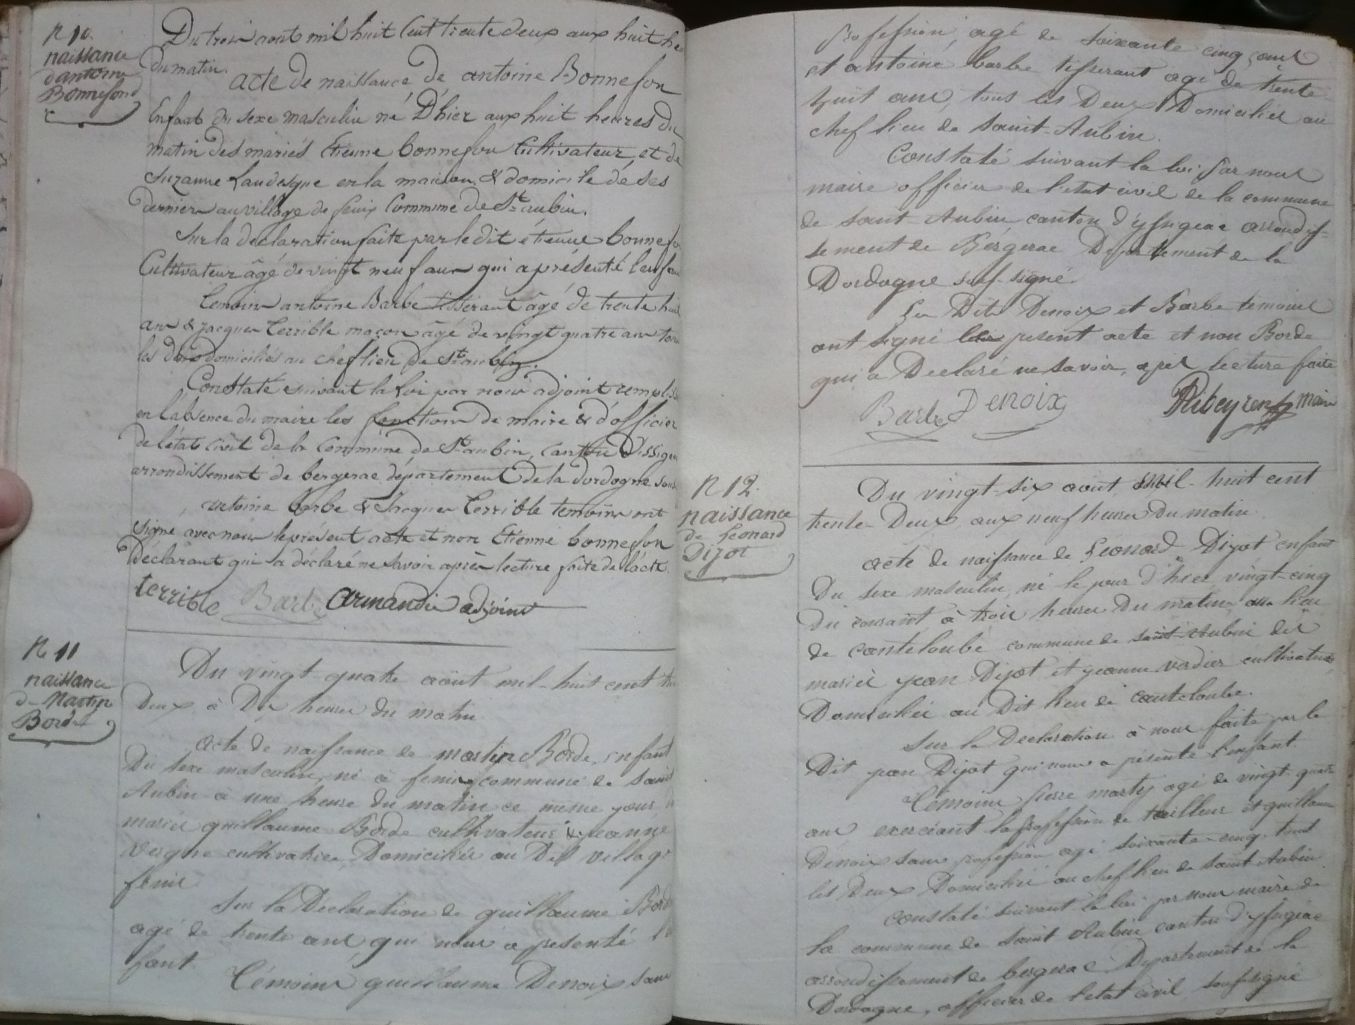 N 10.
naissance
d'antoine
Bonnefond
Du trois aout mil huit Cent trente deux aux huit he
Du matin.
acte de naissance de antoine Bonnefon
Enfant du sexe masculin né D'hier aux huit heures du
matin des mariés Etienne bonnefon Cultivateur et de
Suzanne Laudesque en la maison & domicile de ses
derniers au village de fenis Commune de St aubin.
Sur la déclaration faite par le dit etienne bonnefo
Cultivateur âgé de vingt neuf ans qui a présenté l'enfan
temoins antoine Barbe tisserant âgé de trente huit
ans & jacques terrible maçon âgé de vingt quatre ans tous
les deux domiciliés au chef lieu de St aubin.
Constaté suivant la Loi par nous adjoint remplis
en l'absence du maire les fonctions de maire & d'officier
de l'état civil de la Commune de St aubin, canton D'issige
arrondissement de bergerac département de la dordogne sous
antoine barbe & Jacques terrible temoins ont
signé avec nous le présent acte et non Etienne bonnefon
Déclarant qui la déclaré ne Savoir après lecture faite de l'acte.
terrible Barbe armandie adjoint
N 11
naissance
de Martin
Borde
Du vingt-quatre août mil-huit cent tr
Deux à Dix heures du matin
acte de naissance de martin Borde, enfant
Du sexe masculin, né à fenis commune de saint
Aubin à une heure du matin ce même jour
mariés guillaume Borde cultivateur & jeanne
Vergne cultivatrice, Domiciliés au Dit village
fenis
Sur la Déclaration de guillaume Bord
agé de trente ans, qui nous a présenté l'
fant.
Témoins, guillaume Denoix sans
Profession, agé de soixante cinq ans
et antoine barbe tisserant agé de trente
huit ans, tous les Deux Domiciliés au
chef lieu de Saint-Aubin.
Constaté suivant la loi, par nous
maire officier de l'état civil de la commune
de saint Aubin canton d'ysigeac arrondis-
sement de Bergerac Département de la
Dordogne sous-signé.
Les Dits Denoix et Barbe temoins
ont signé le présent acte et non Borde
qui a Déclaré ne savoir, après lecture faite
Barbe Denoix Ribeyren maire
N 12.
naissance
de Leonard
Dizot
Du vingt-six août mil-huit cent
trente-Deux aux neuf heures du matin.
acte de naissance de Leonard Dizot enfant
Du sexe masculin, né le jour d'hier vingt-cinq
du courant à trois heures du matin au lieu
de canteloube commune de saint Aubin des
mariés jean Dizot et jeanne verdier cultivateurs
Domiciliés au Dit lieu de canteloube.
Sur la Déclaration à nous faite par le
Dit jean Dizot qui nous a présenté l'enfant
Témoins pierre marty agé de vingt quatre
ans exerciant la profession de tailleur et guillaume
Denoix sans profession agé soixante-cinq tous
les Deux Domiciliés au chef lieu de saint Aubin
Constaté suivant la loi par nous maire de
la commune de saint Aubin canton d'ysigeac
arrondissement de bergerac Departement de la
Dordogne, officier de l'etat civil soussigné